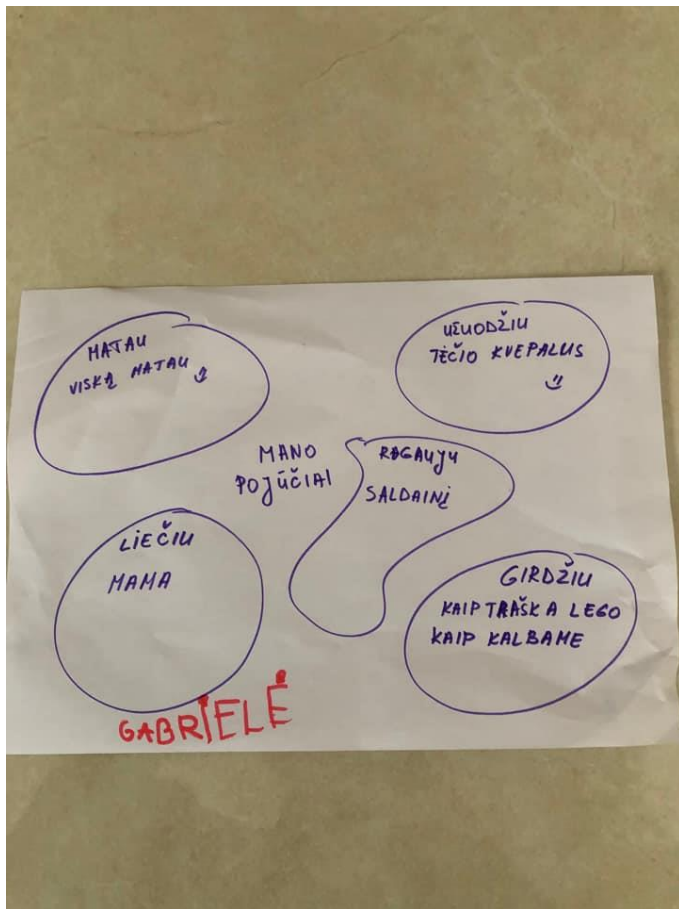 MATAU
VISKĄ MATAU
UŽUODŽIU
TĖČIO KVEPALUS
MANO
POJŪČIAI
RAGAUJU
SALDAINĮ
LIEČIU
MAMA
GIRDŽIU
KAIP TRAŠKA LEGO
KAIP KALBAME
GABRIELĖ